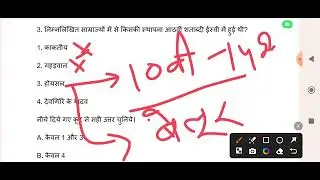 3. निम्नलिखित साम्राज्यों में से किसकी स्थापना आठवीं शताब्दी ईस्वी में हुई थी?
1. काकतीय
2. गहड़वाल
3. होयसल
10वी - 14वी
4. देवगिरि के यादव
नीचे दिये गए कूट से सही उत्तर चुनिये।
A. केवल 1 और 3
B. केवल 4